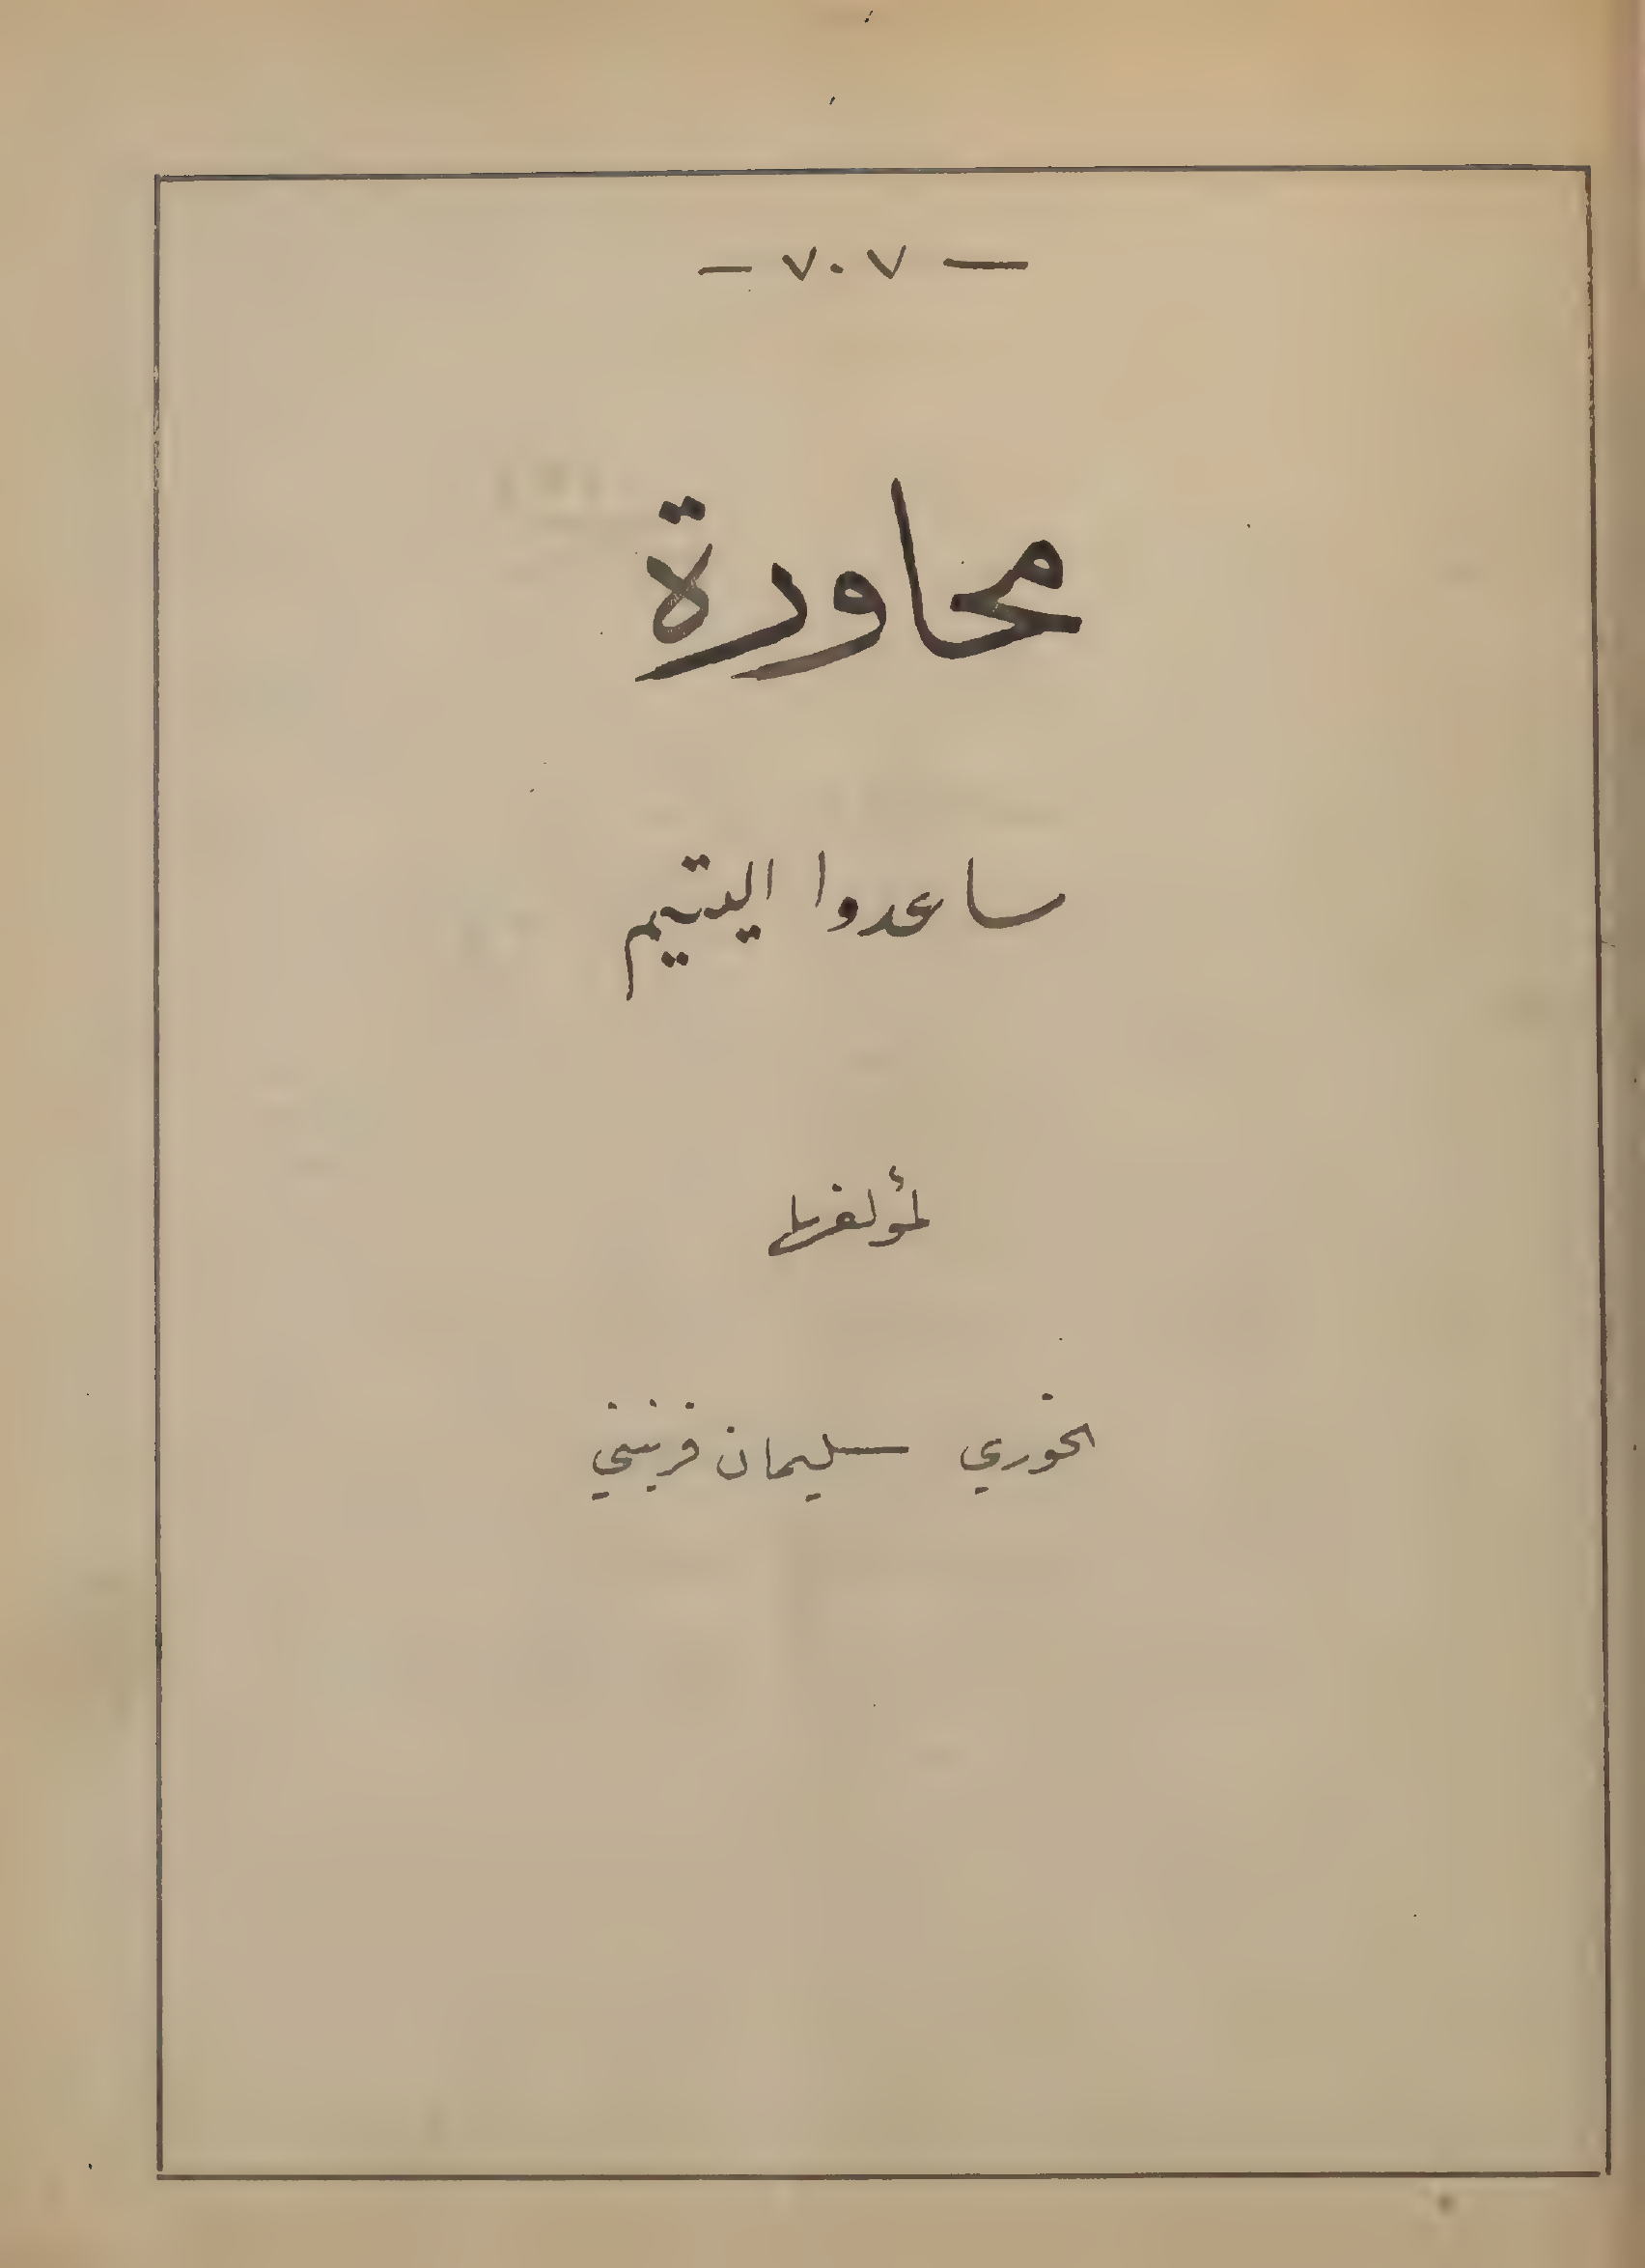 — ٧٠٧ —
محاورة
ساعدوا اليتيم
لمؤلفها
الخوري سليمان